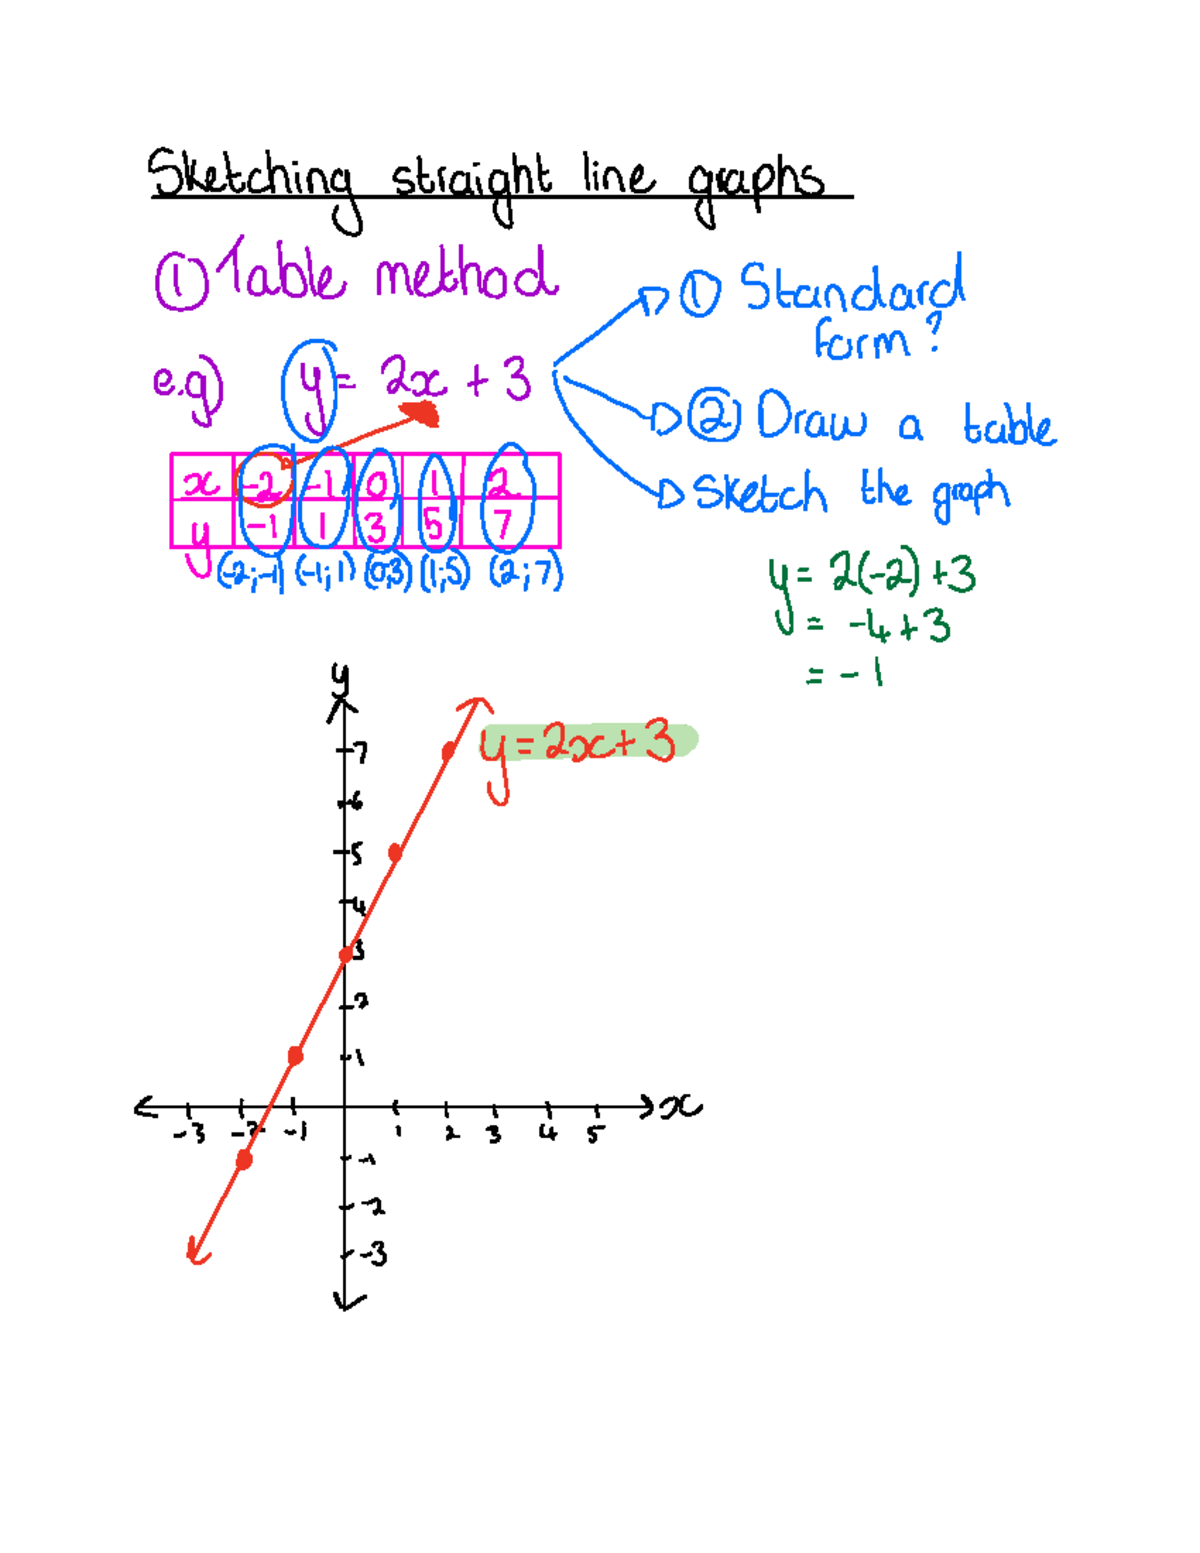 Sketching straight line graphs
① Table method
① Standard form?
e.g) y = 2x + 3
② Draw a table
Sketch the graph
x -2 -1 0 1 2
y -1 1 3 5 7
(-2;-1) (-1;1) (0;3) (1;5) (2;7)
y = 2(-2) + 3
= -4 + 3
= -1
y
y = 2x + 3
7
6
5
4
3
2
1
-3 -2 -1 1 2 3 4 5 x
-1
-2
-3